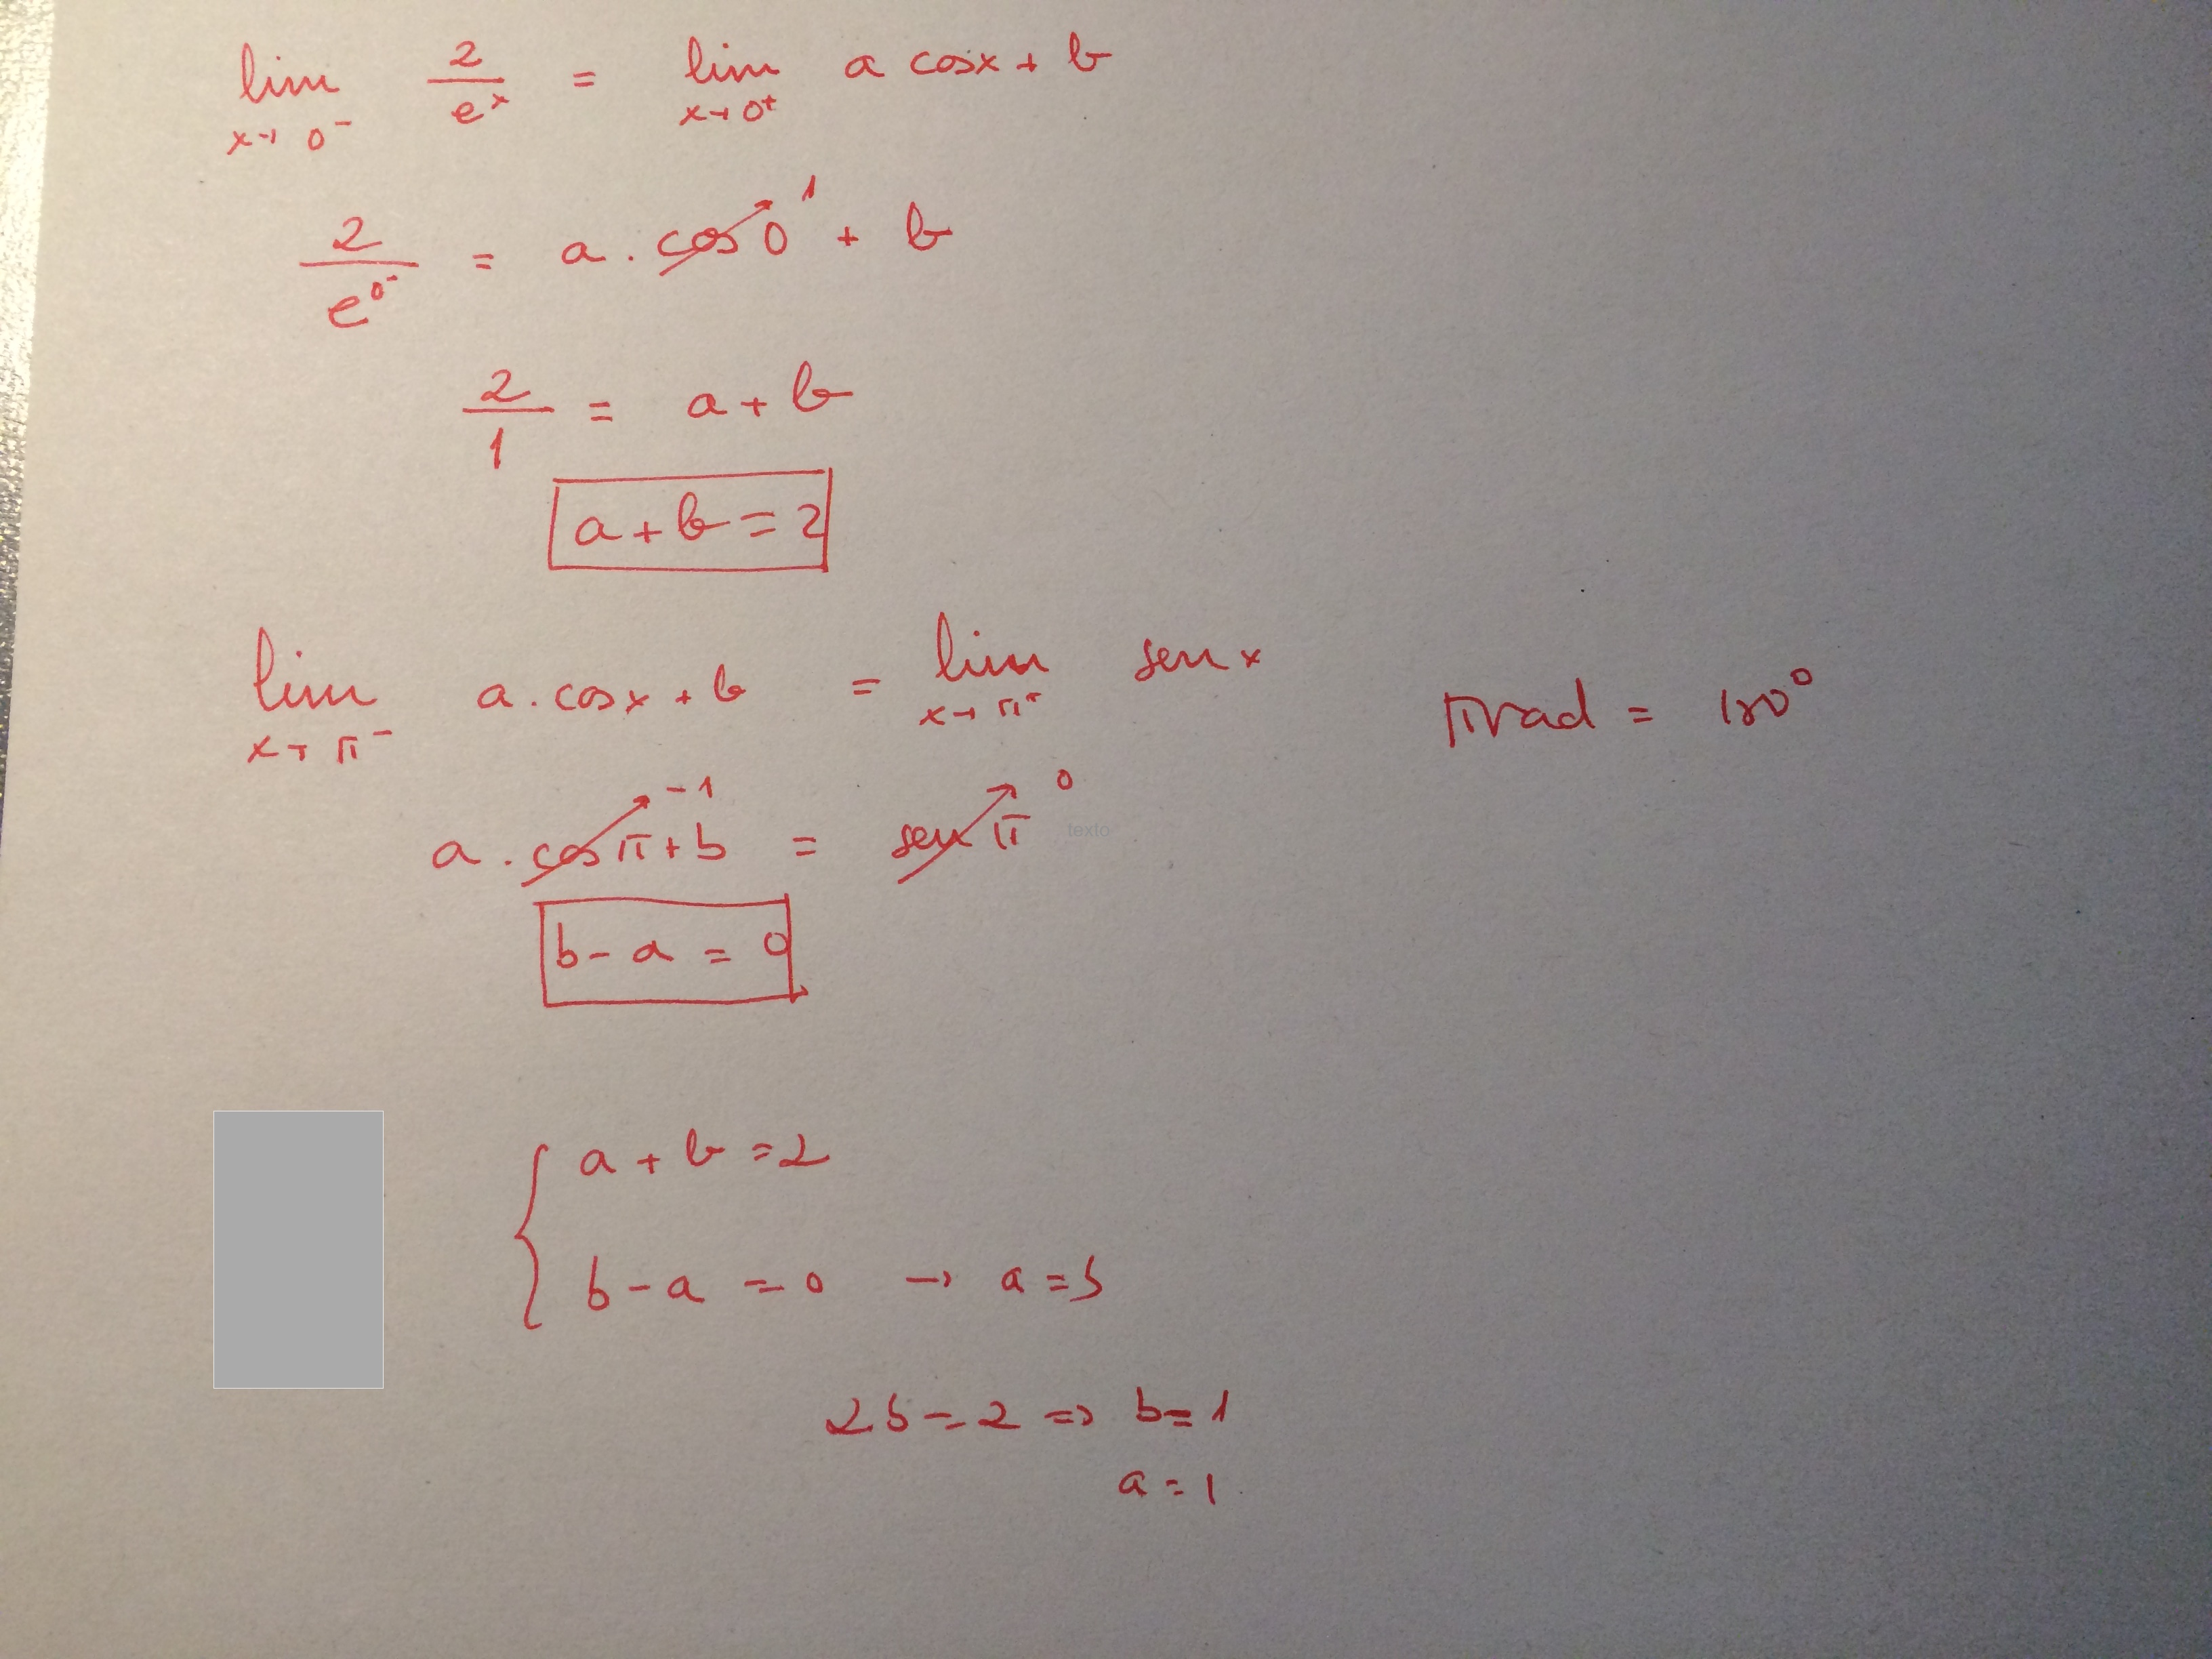 lim x→0⁻ 2/eˣ = lim x→0⁺ a cosx + b
2/e⁰⁻ = a . cos 0 ¹ + b
2/1 = a + b
a + b = 2
lim x→π⁻ a . cosx + b = lim x→π⁺ sen x
πrad = 180°
a . cos π + b = sen π
-1
0
texto
b - a = 0
{ a + b = 2
b - a = 0 → a = b
2b = 2 ⇒ b = 1
a = 1